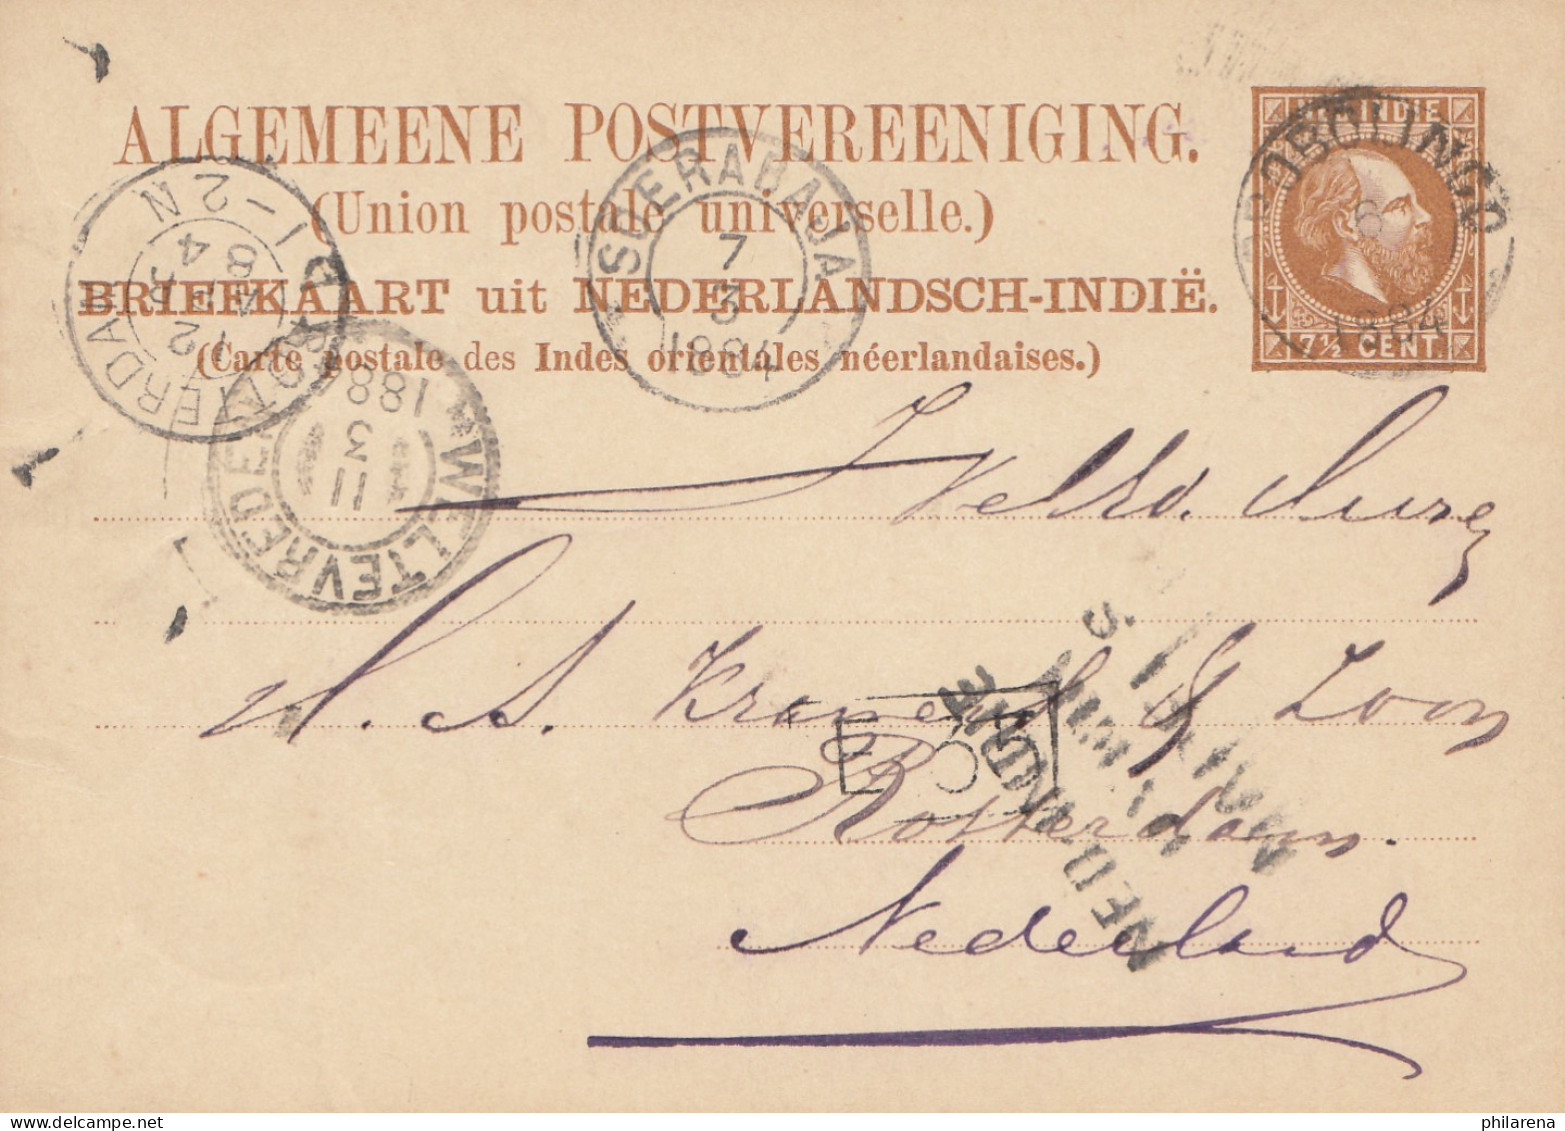 ALGEMEENE POSTVEREENIGING.
(Union postale universelle.)
BRIEFKAART uit NEDERLANDSCH-INDIË.
(Carte postale des Indes orientales néerlandaises.)
INDIE
7½ CENT.
PROBOLINGO
6
1884
SOERABAJA
7
3
1884
1-2N
84
12
ROTTERDAM
WELTEVREDEN
11
3
188
H. A. Kramers & Zoon
Rotterdam.
Nederland
NED. INDIE
philarena